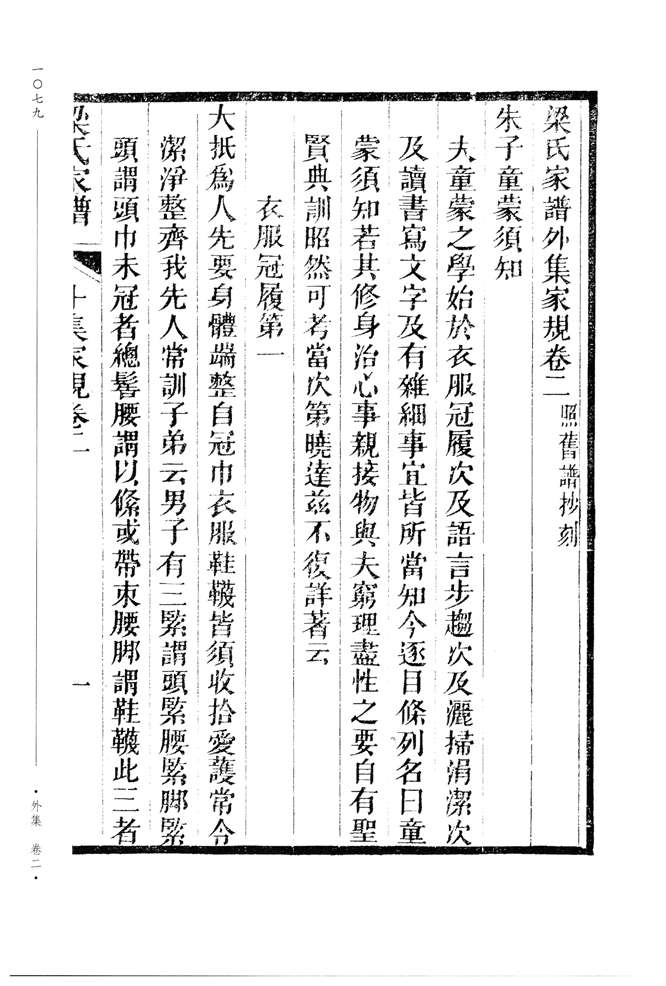 梁氏家譜外集家規卷二 照舊譜抄刻
朱子童蒙須知
夫童蒙之學始於衣服冠履次及語言步趨次及灑掃涓潔次
及讀書寫文字及有雜細事宜皆所當知今逐目條列名曰童
蒙須知若其修身治心事親接物與夫窮理盡性之要自有聖
賢典訓昭然可考當次第曉達兹不復詳著云
衣服冠履第一
大抵爲人先要身體端整自冠巾衣服鞋韈皆須收拾愛護常令
潔淨整齊我先人常訓子弟云男子有三緊謂頭緊腰緊脚緊
頭謂頭巾未冠者總髻腰謂以絛或帶束腰脚謂鞋韈此三者
梁氏家譜 外集家規卷二 一
一〇七九
·外集 卷二·